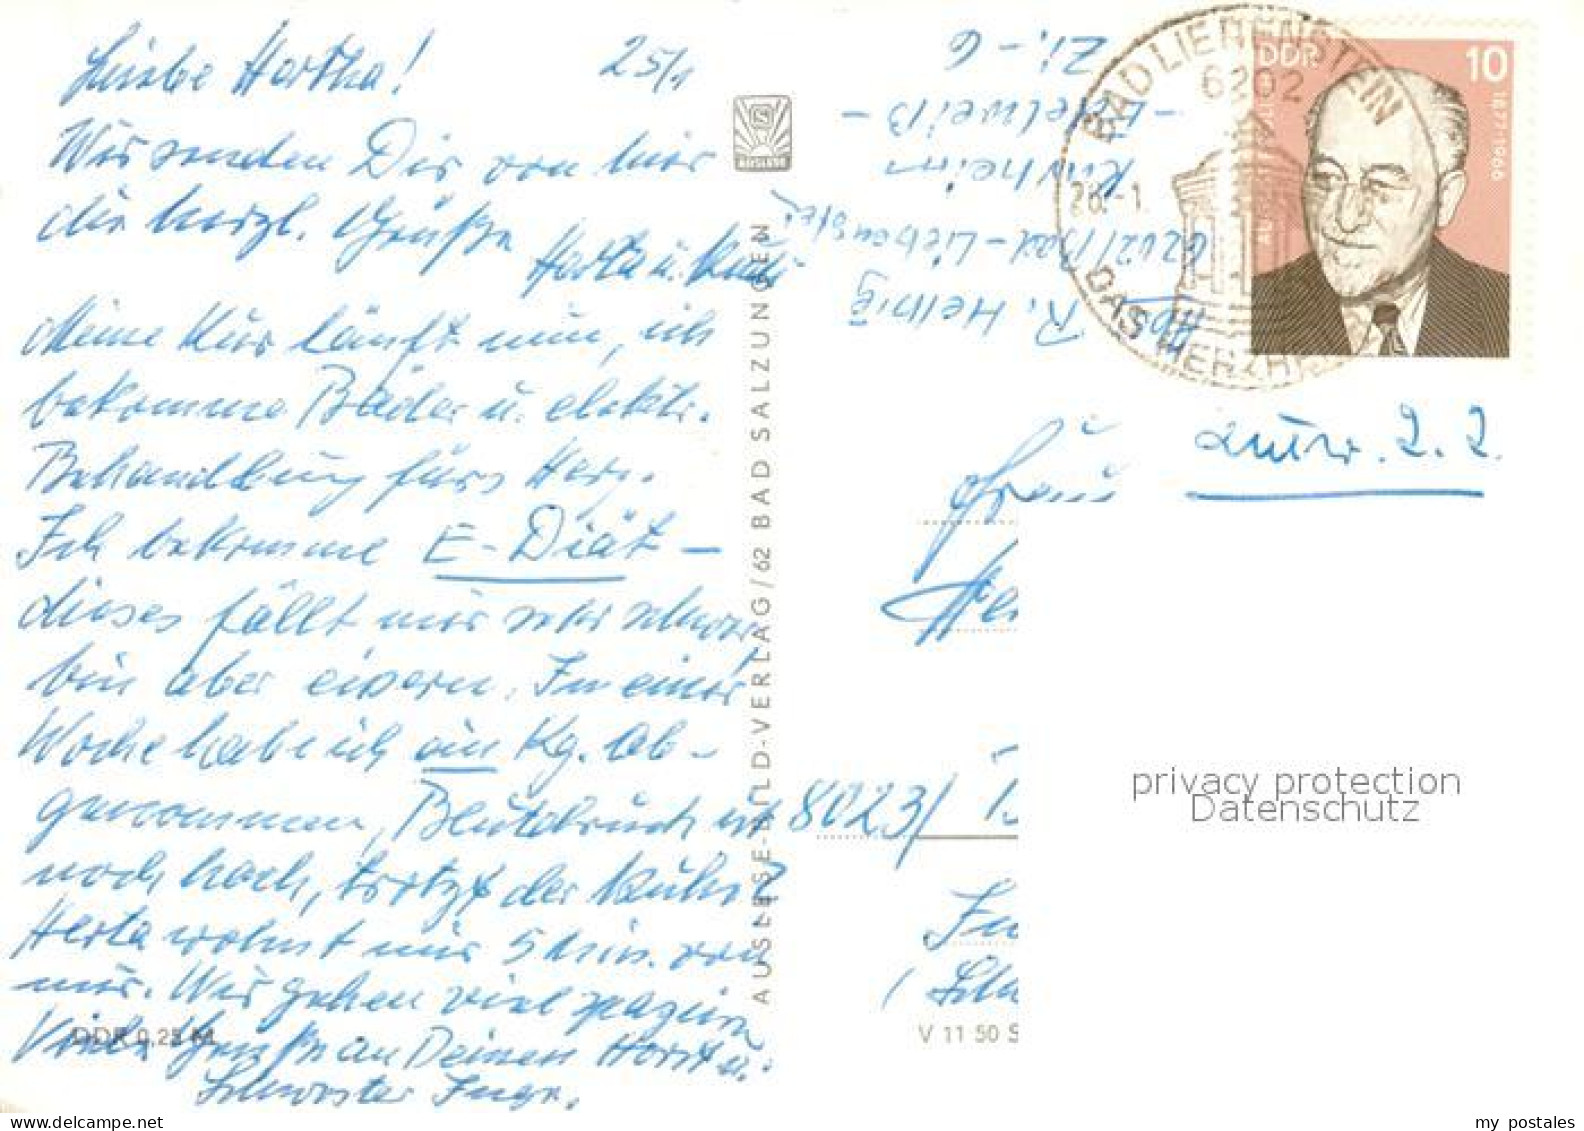 Liebe Hertha!
25/1
Wir senden Dir von hier
die herzl. Grüße Herta u. Rudi
Meine Kur läuft nun, ich
bekomme Bäder u. elektr.
Behandlung fürs Herz.
Ich bekomme E-Diät –
dieses fällt mir sehr schwer
bin aber eisern. In einer
Woche habe ich ein Kg. ab-
genommen, Blutdruck ist
noch hoch, trotz der Kühle?
Herta wohnt nur 5 Min. von
mir. Wir gehen viel spazieren
Viele Grüße an Deinen Horst u.
Schwester Inge.
DDR 0,25 M
AUSLESE-BILD-VERLAG/62 BAD SALZUNGEN
Abs. R. Helmig
6202/Bad-Liebenstein
Kurheim
-Edelweiß-
Zi.-6
BAD LIEBENSTEIN
6202
26.-1.
DAS HERZH
DDR
10
1877-1966
antw. 2.2.
Frau
8023/
V 11 50 S
privacy protection
Datenschutz
my postales